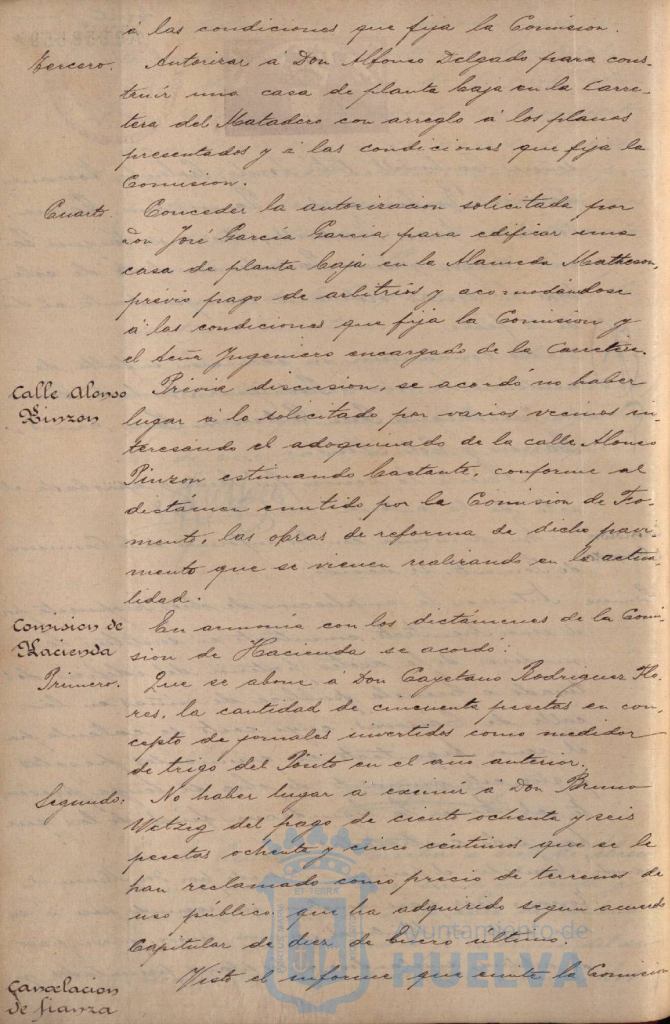 á las condiciones que fija la Comision.
Tercero. Autorizar á Don Alfonso Delgado para cons-
truír una casa de planta baja en la Carre-
tera del Matadero con arreglo á los planos
presentados y á las condiciones que fija la
Comision.
Cuarto. Conceder la autorizacion solicitada por
Don José García García para edificar una
casa de planta baja en la Alameda Matheson,
previo pago de arbitrios y acomodándose
á las condiciones que fija la Comision y
el Señor Ingeniero encargado de la Carretera.
Calle Alonso
Pinzon
Previa discusion, se acordó no haber
lugar á lo solicitado por varios vecinos in-
teresando el adoquinado de la calle Alonso
Pinzon estimando bastante, conforme al
dictámen emitido por la Comision de Fo-
mento, las obras de reforma de dicho pavi-
mento que se vienen realizando en la actua-
lidad.
Comision de
Hacienda
En armonía con los dictámenes de la Comi-
sion de Hacienda se acordó:
Primero. Que se abone á Don Cayetano Rodriguez Flo-
res, la cantidad de cincuenta pesetas en con-
cepto de jornales invertidos como medidor
de trigo del Pósito en el año anterior.
Segundo. No haber lugar á eximir á Don Bruno
Wetzig del pago de ciento ochenta y seis
pesetas ochenta y cinco céntimos que se le
han reclamado como precio de terrenos de
uso público que ha adquirido segun acuerdo
Capitular de diez de Enero último.
Cancelacion
de fianza
Visto el informe que emite la Comision
Ayuntamiento de
HUELVA